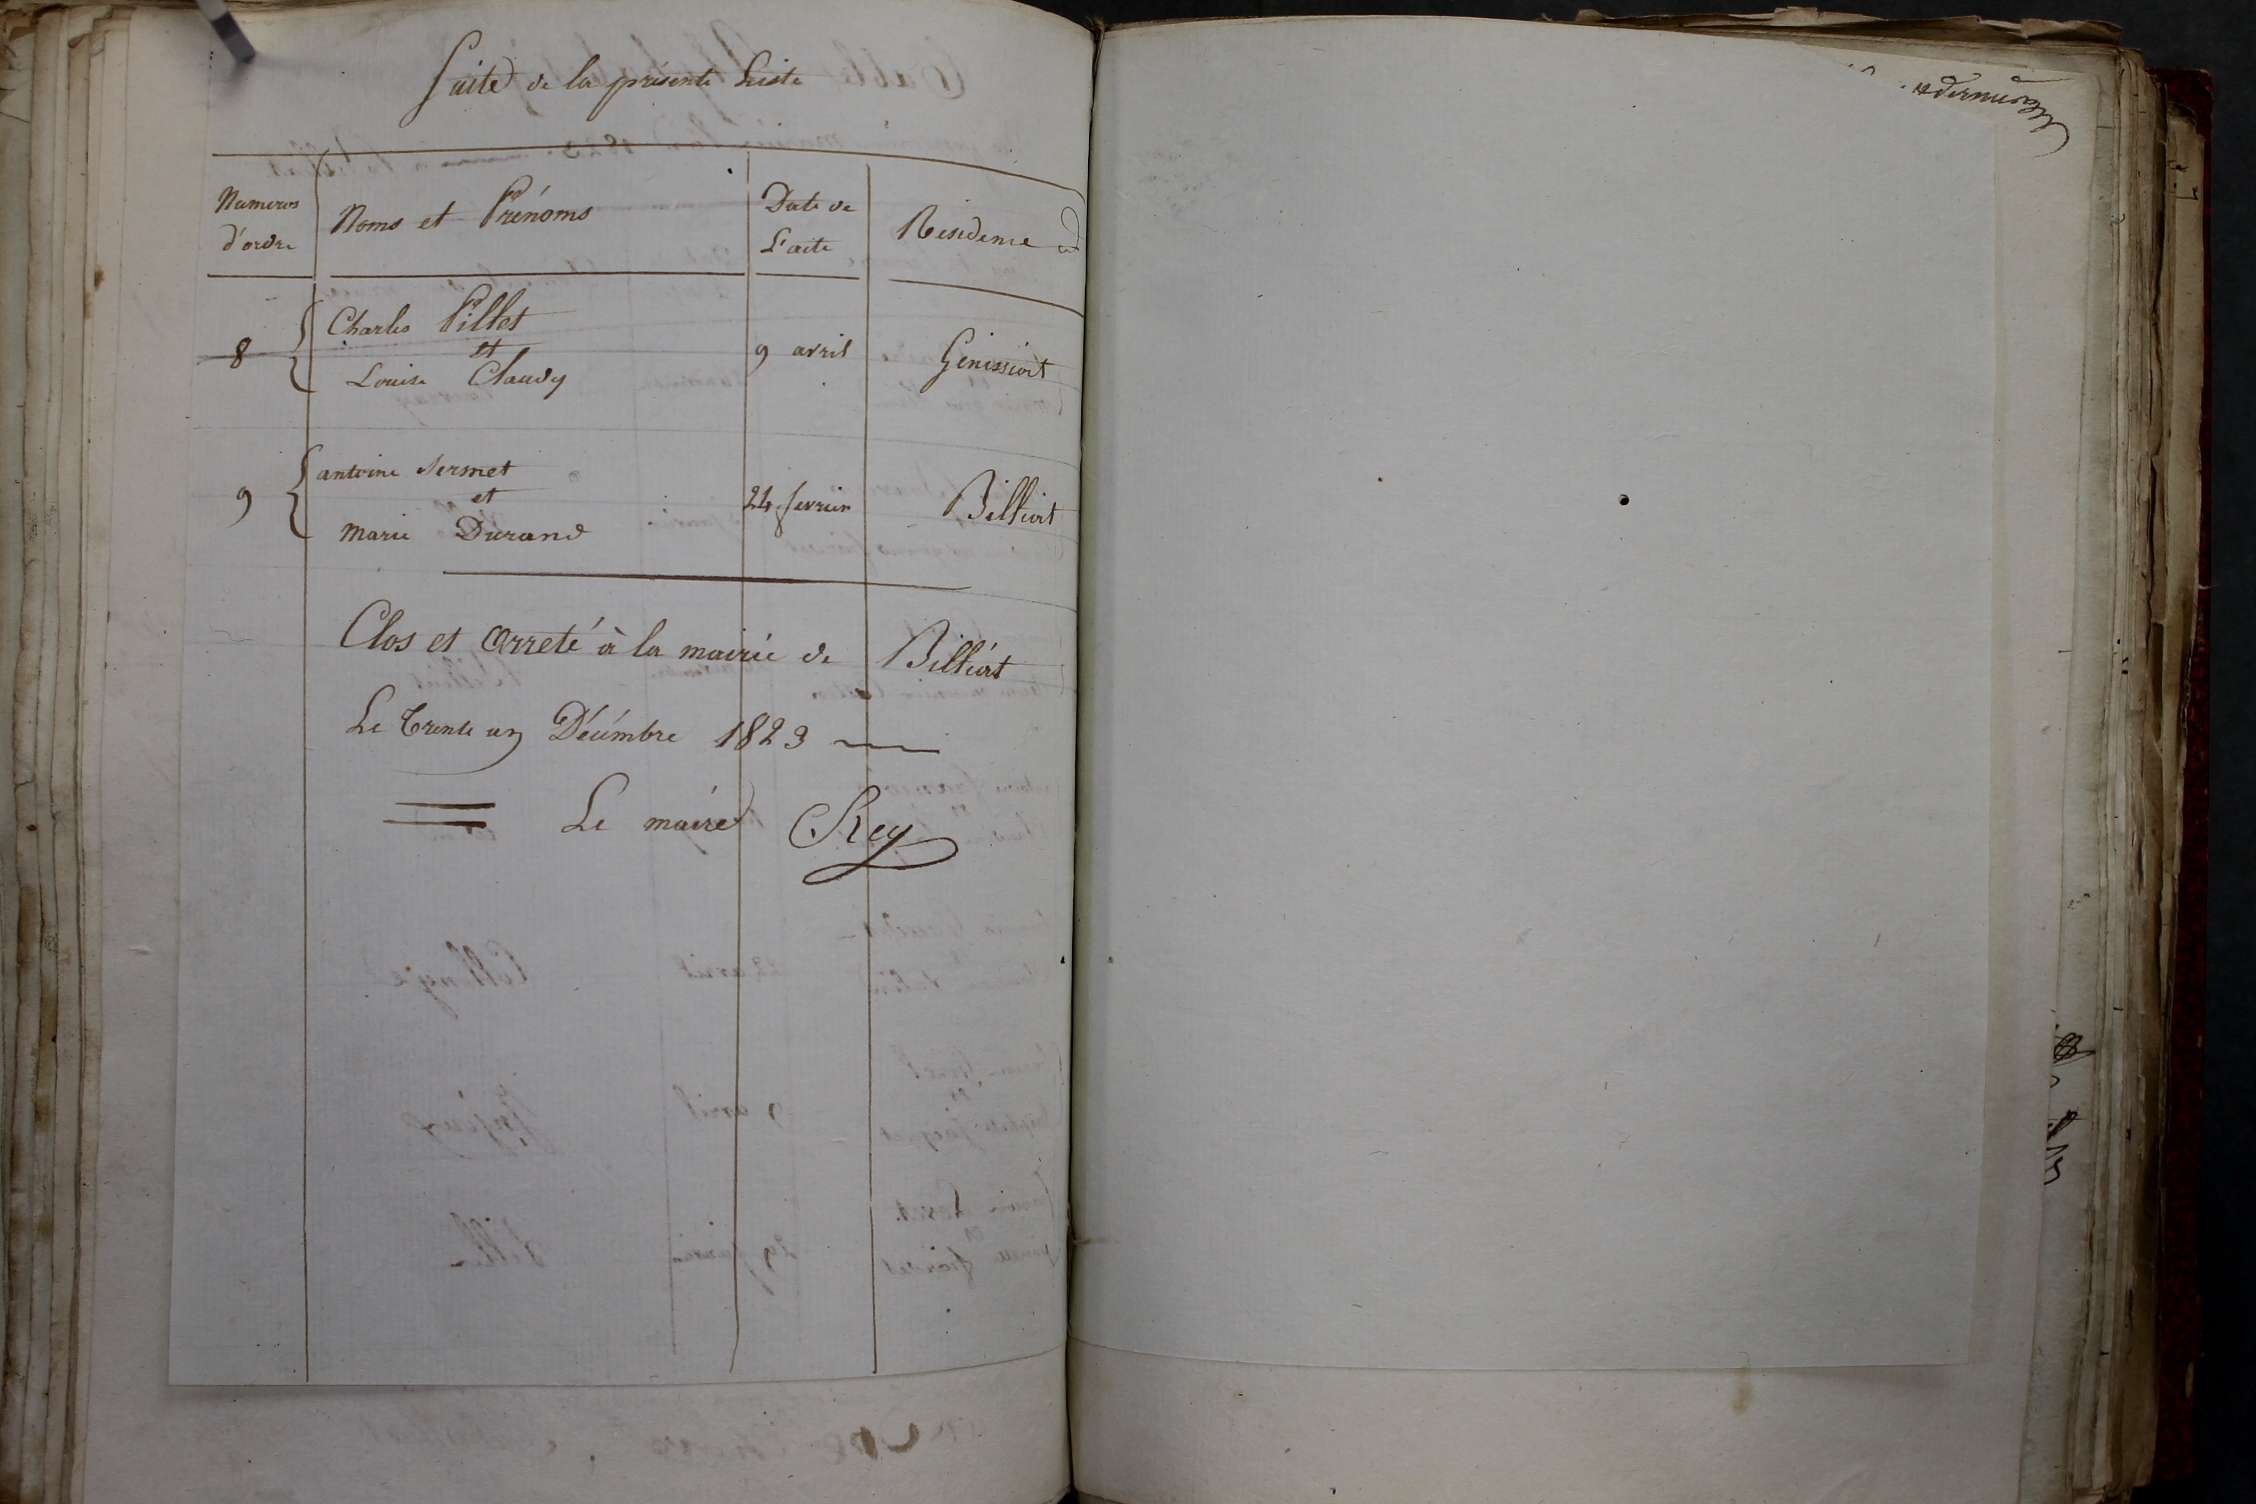 Suite de la présente Liste
Numeros d'ordre
Noms et Prénoms
Date de L'acte
Residence
8
Charles Pillet
et
Louise Claudy
9 avril
Génissiat
9
antoine Sermet
et
Marie Durand
24 fevrier
Billiat
Clos et arreté à la mairie de Billiat
Le Trente un Décembre 1823
Le maire Rey